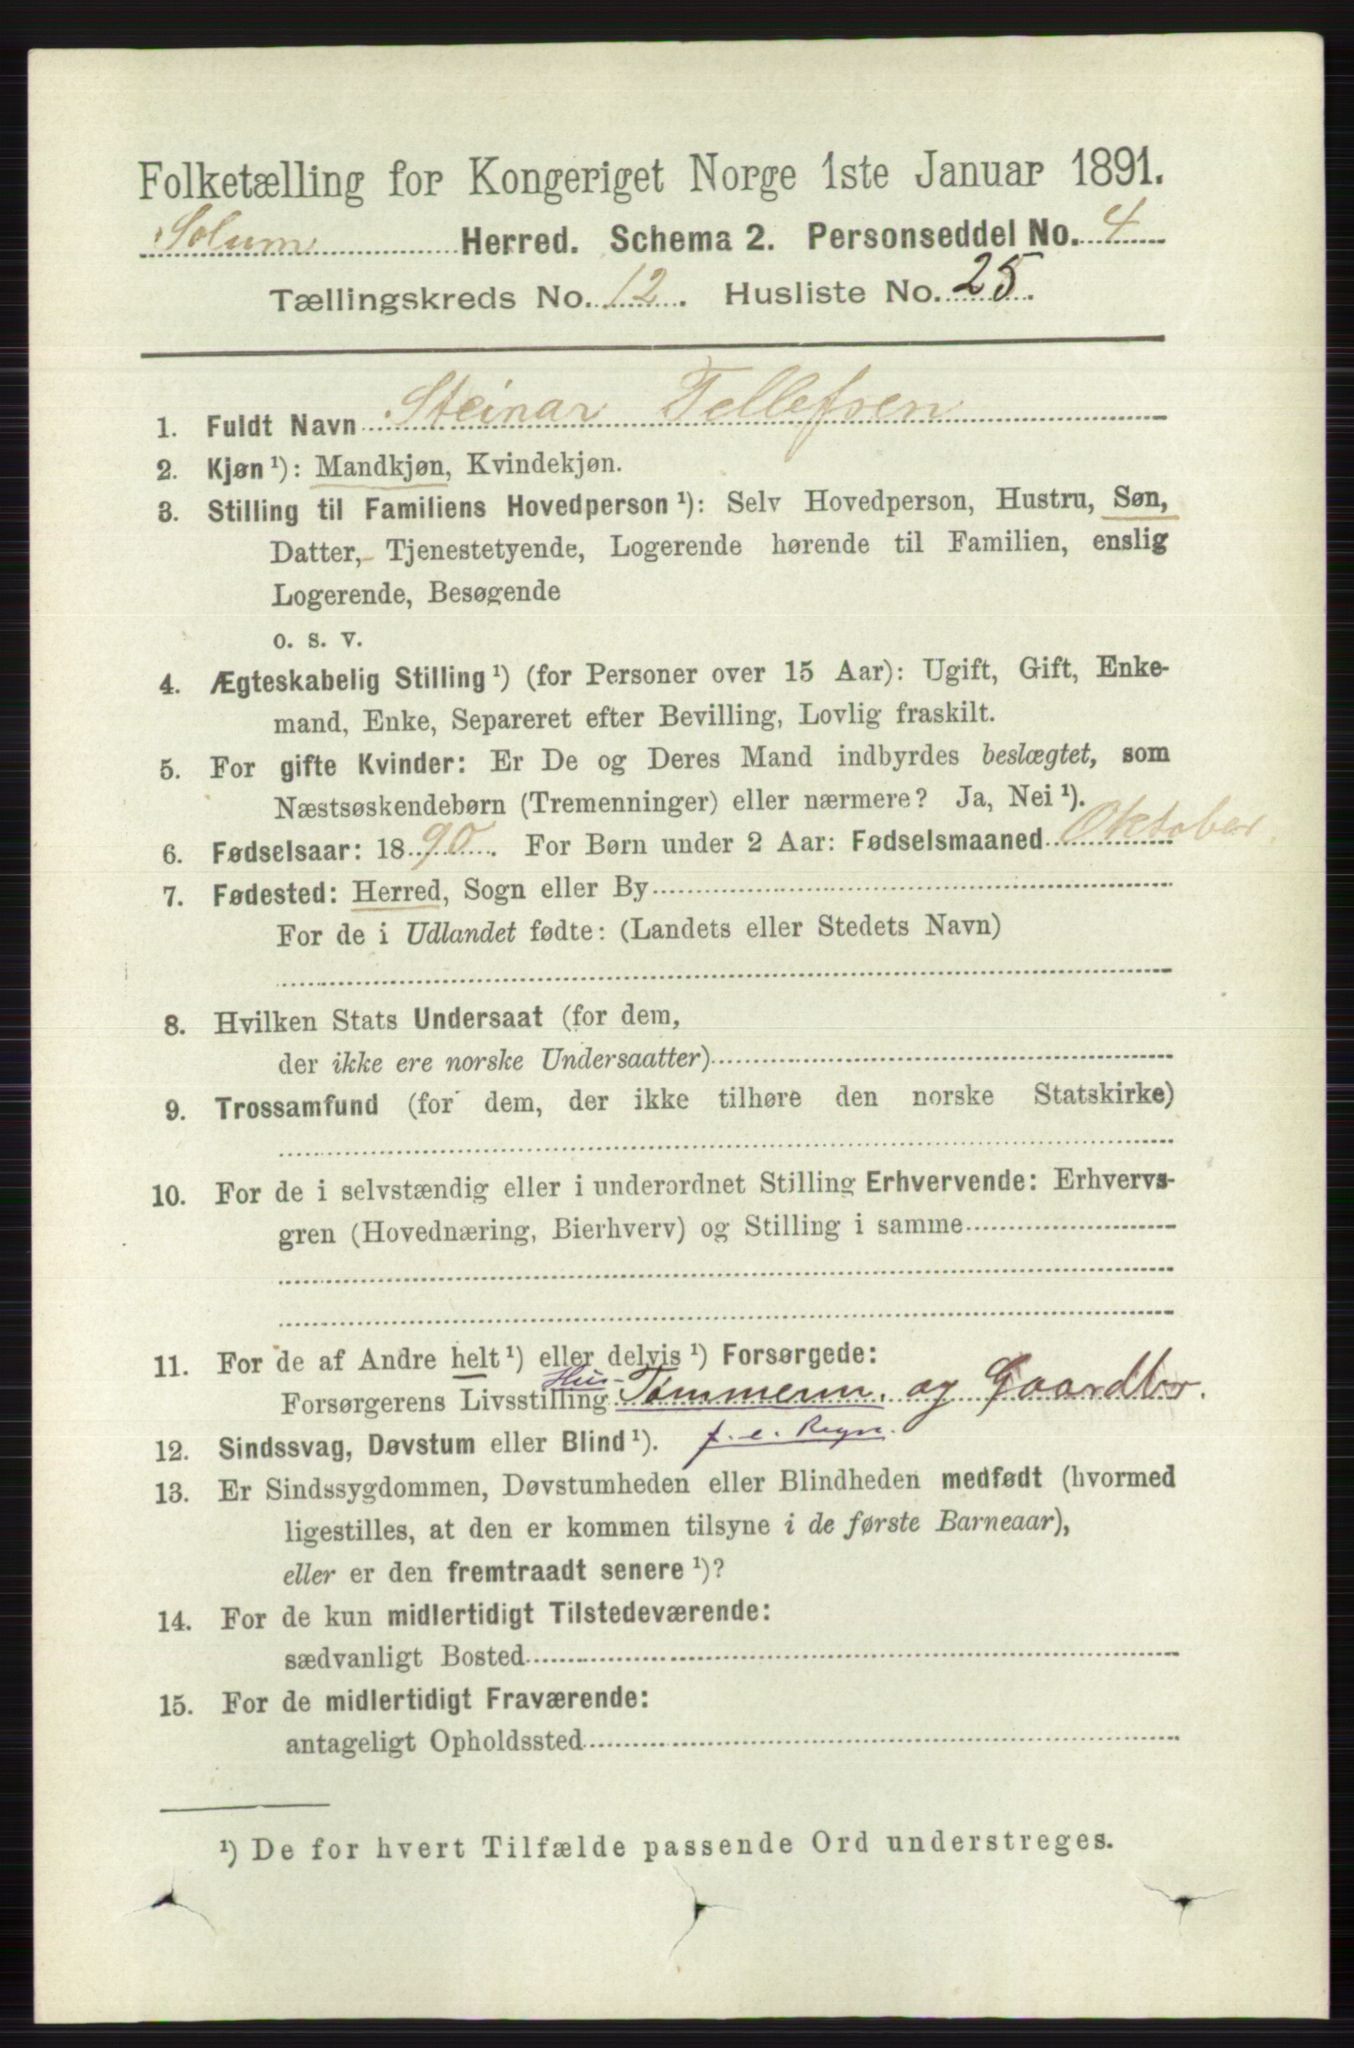 Folketælling for Kongeriget Norge 1ste Januar 1891.
Solum Herred. Schema 2. Personseddel No. 4
Tællingskreds No. 12. Husliste No. 25.
1. Fuldt Navn Steinar Tellefsen
2. Kjøn¹): Mandkjøn, Kvindekjøn.
3. Stilling til Familiens Hovedperson¹): Selv Hovedperson, Hustru, Søn,
Datter, Tjenestetyende, Logerende hørende til Familien, enslig
Logerende, Besøgende
o. s. v.
4. Ægteskabelig Stilling¹) (for Personer over 15 Aar): Ugift, Gift, Enke-
mand, Enke, Separeret efter Bevilling, Lovlig fraskilt.
5. For gifte Kvinder: Er De og Deres Mand indbyrdes beslægtet, som
Næstsøskendebørn (Tremenninger) eller nærmere? Ja, Nei¹).
6. Fødselsaar: 1890. For Børn under 2 Aar: Fødselsmaaned Oktober.
7. Fødested: Herred, Sogn eller By
For de i Udlandet fødte: (Landets eller Stedets Navn)
8. Hvilken Stats Undersaat (for dem,
der ikke ere norske Undersaatter)
9. Trossamfund (for dem, der ikke tilhøre den norske Statskirke)
10. For de i selvstændig eller i underordnet Stilling Erhvervende: Erhvervs-
gren (Hovednæring, Bierhverv) og Stilling i samme
11. For de af Andre helt¹) eller delvis¹) Forsørgede:
Forsørgerens Livsstilling Hus-Tømmerm. og Gaardbr.
12. Sindssvag, Døvstum eller Blind¹). f. e. Regn.
13. Er Sindssygdommen, Døvstumheden eller Blindheden medfødt (hvormed
ligestilles, at den er kommen tilsyne i de første Barneaar),
eller er den fremtraadt senere¹)?
14. For de kun midlertidigt Tilstedeværende:
sædvanligt Bosted
15. For de midlertidigt Fraværende:
antageligt Opholdssted
¹) De for hvert Tilfælde passende Ord understreges.